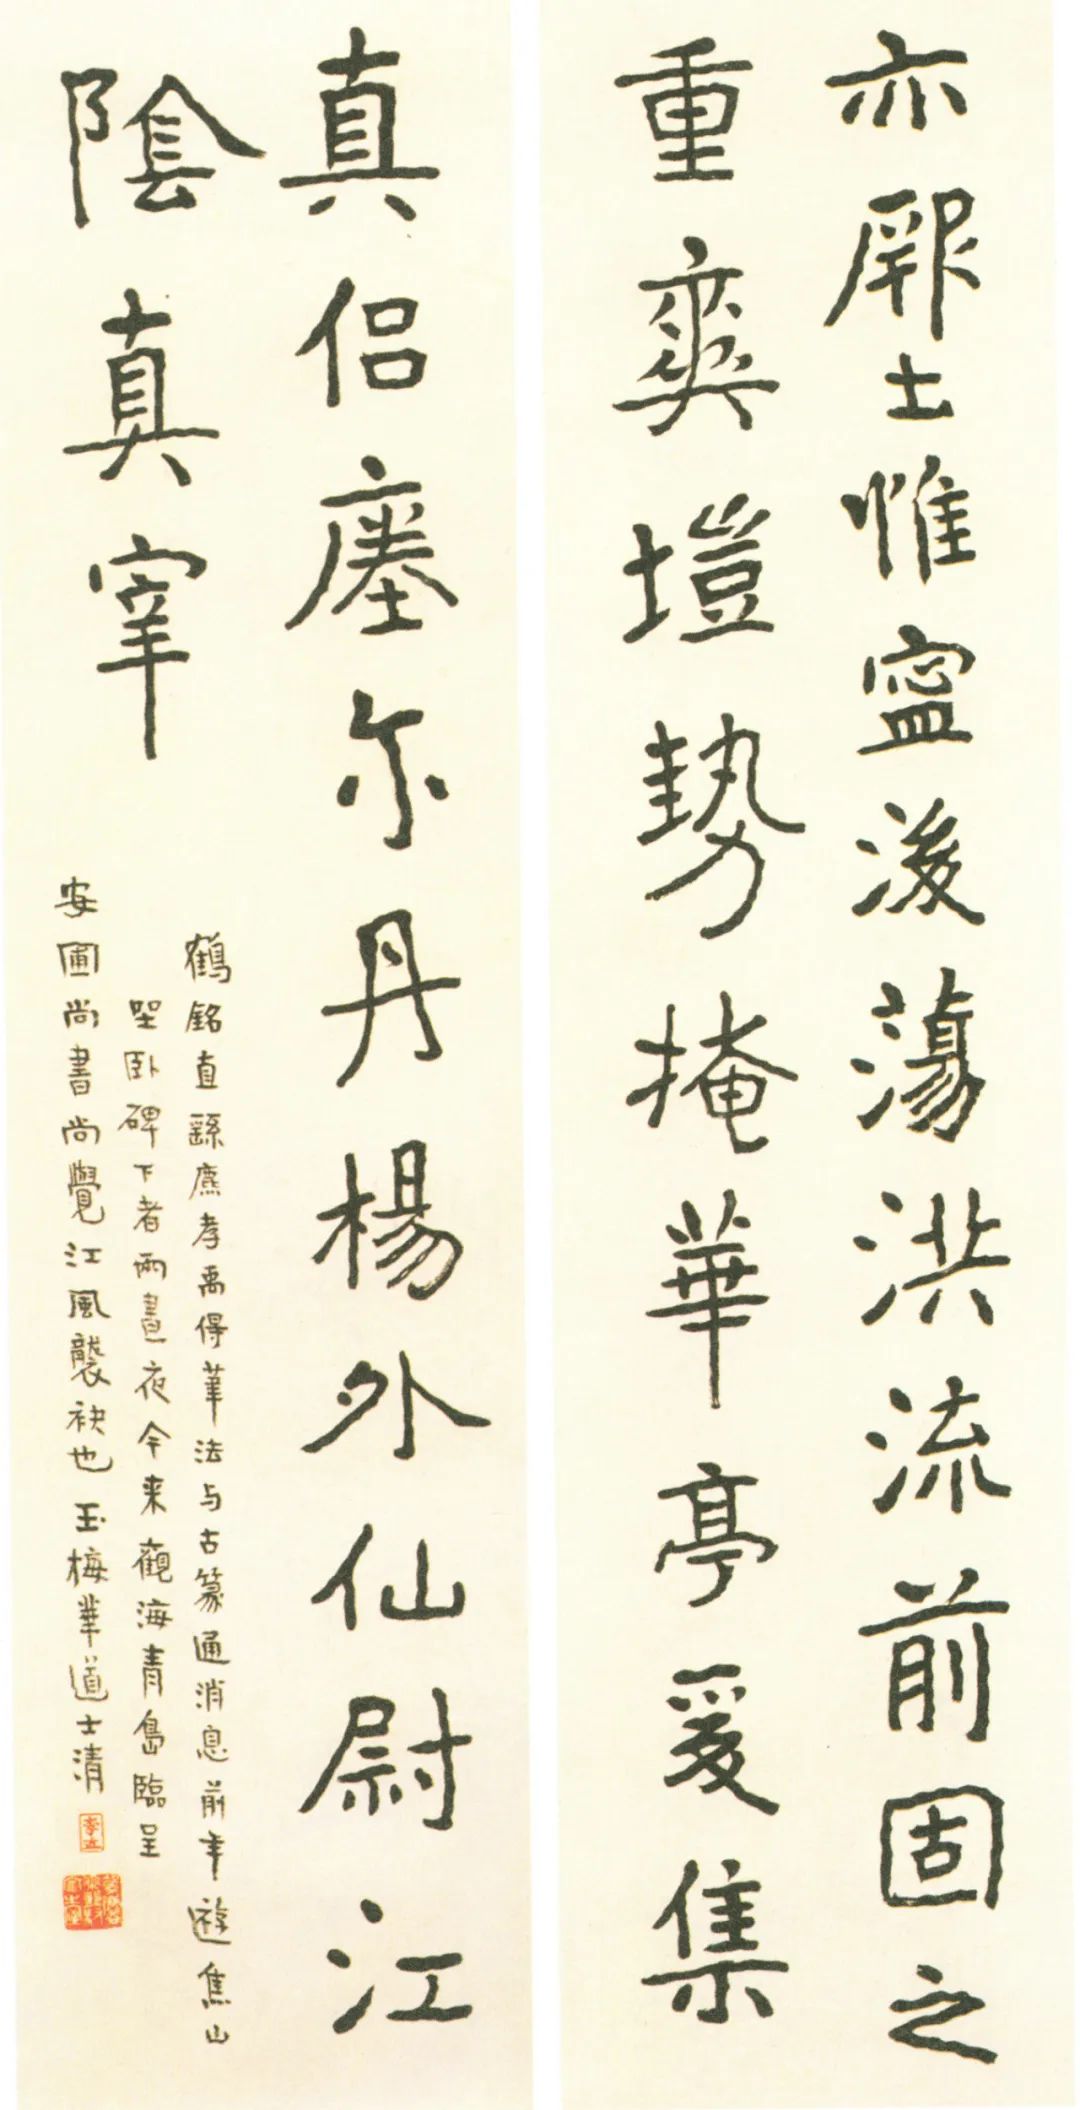 亦厞土惟寍後蕩洪流前固之
重爽塏勢掩華亭爰集
真侣瘞尔丹楊外仙尉江
陰真宰
鶴銘直繇鷹孝禹得筆法与古篆通消息前年遊焦山
坐卧碑下者兩晝夜今来觀海青島臨呈
安圃尚書尚覺江風襲袂也玉梅華道士清